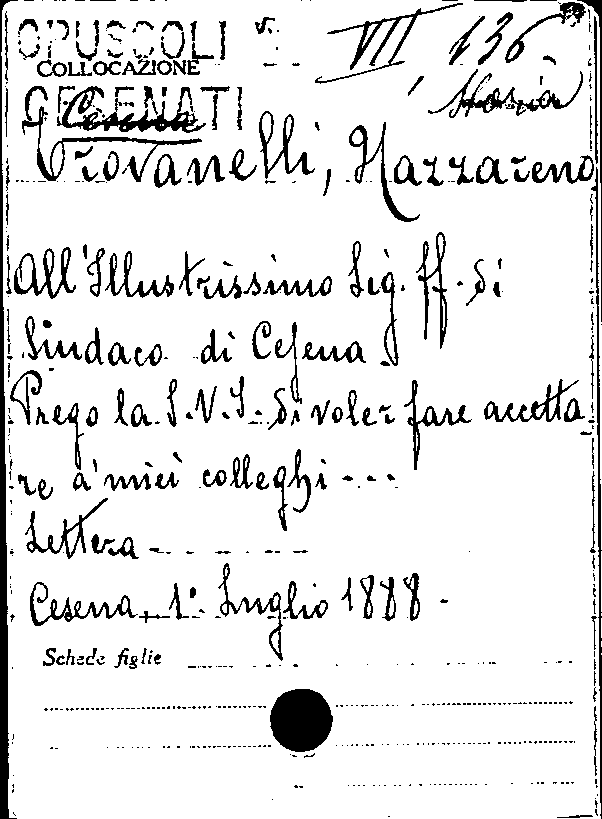 OPUSCOLI v. VII, 136
COLLOCAZIONE
CESENATI Storia
Cesena
Trovanelli, Nazzareno
All'Illustrissimo Sig. ff. di
Sindaco di Cesena.
Prego la S.V.I. di voler fare accetta
re a' miei colleghi ---
Lettera - - - - - -
Cesena, 1° Luglio 1888 -
Schede figlie